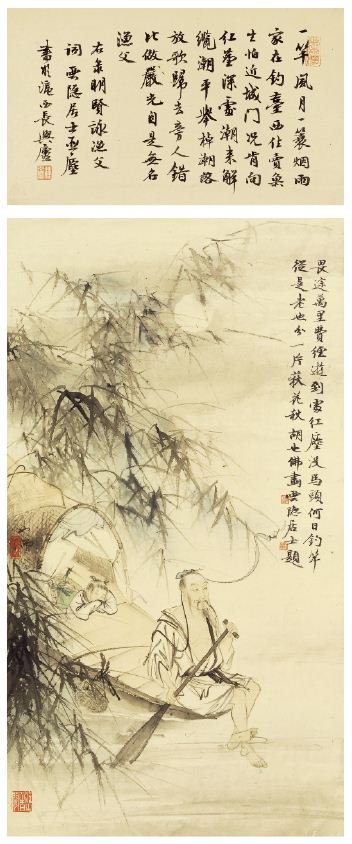 一竿風月一蓑烟雨
家在釣臺西住賣魚
生怕近城門況肯向
紅塵深處潮來解
纜潮平舉棹潮落
放歌歸去旁人錯
比做嚴光自是無名
漁父
右錄明賢詠漁父
詞雲隱居士
書於滬西長興廬
畏途萬里費經遊到處紅塵沒馬頭何日釣竿
從是老也分一片荻花秋胡也佛畫雲隱居士題